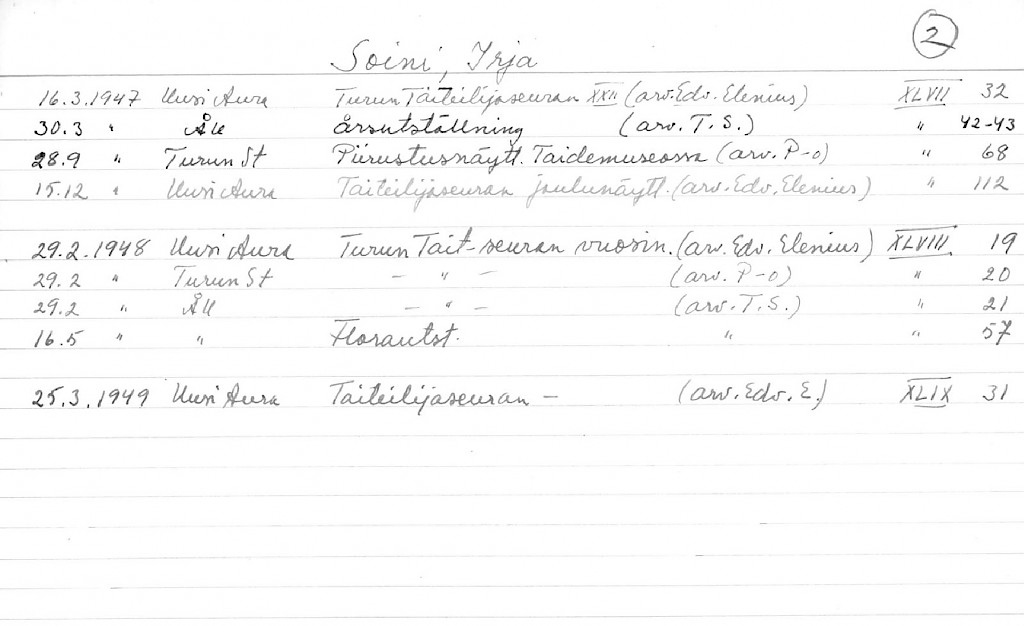 2
Soini, Yrja
16.3.1947 Uusi Aura Turun Taiteilijaseuran XXII (arv. Edv. Elenius) XLVII 32
30.3 " ÅU Årsutställning (arv. T. S.) " 42-43
28.9 " Turun St Piirustusnäytt. Taidemuseossa (arv. P-o) " 68
15.12 " Uusi Aura Taiteilijaseuran joulunäytt. (arv. Edv. Elenius) " 112
29.2.1948 Uusi Aura Turun Tait-seuran vuosin. (arv. Edv. Elenius) XLVIII 19
29.2 " Turun St - " - (arv. P-o) " 20
29.2 " ÅU - " - (arv. T. S.) " 21
16.5 " " Florautst. " " 57
25.3.1949 Uusi Aura Taiteilijaseuran - (arv. Edv. E.) XLIX 31